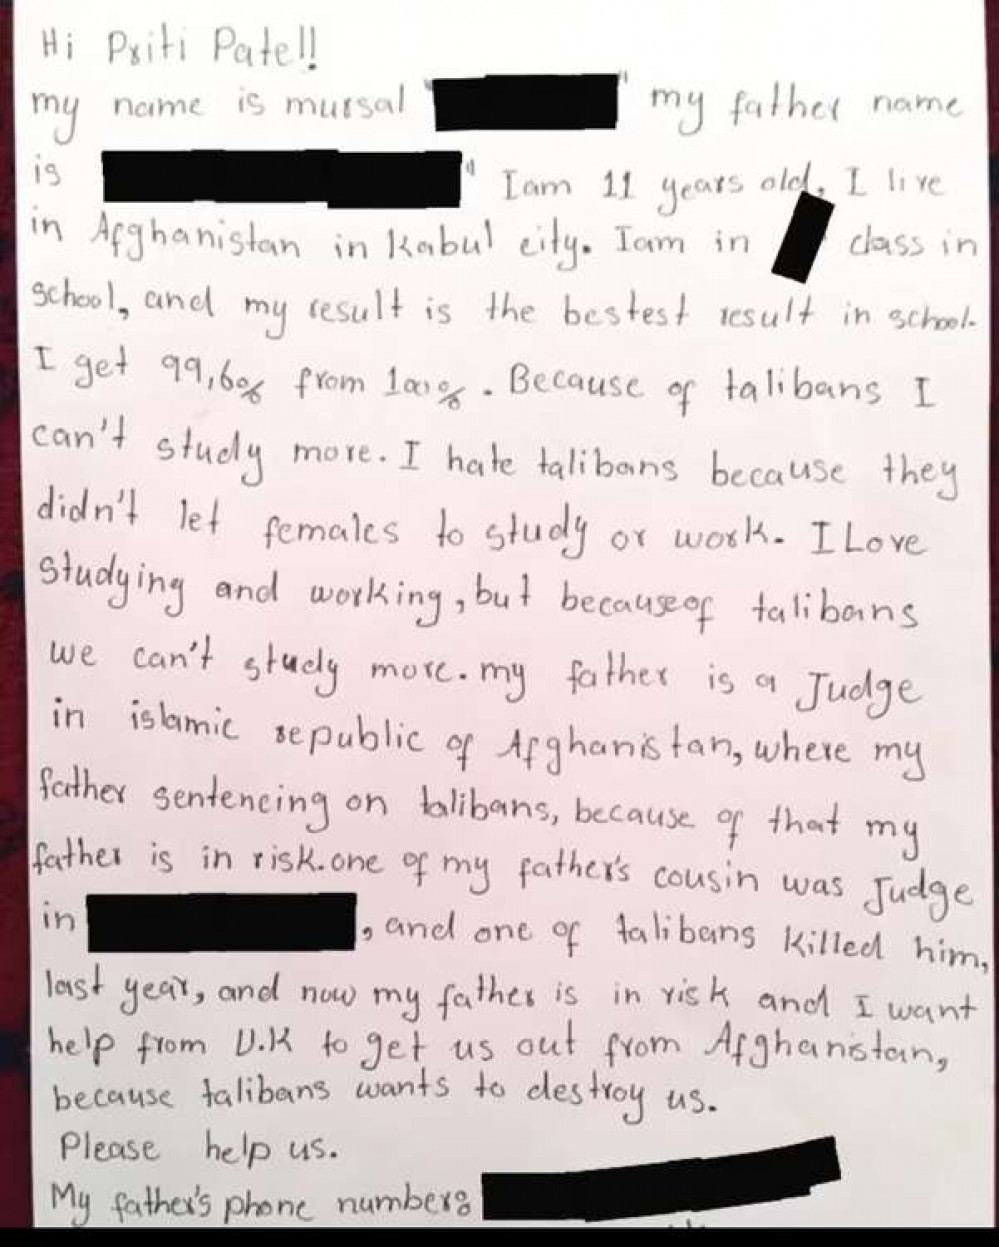 Hi Priti Patel!!
my name is mursal " " my father name
is " Iam 11 years old. I live
in Afghanistan in kabul city. Iam in class in
school, and my result is the bestest result in school.
I get 99,6% from 100%. Because of talibans I
can't study more. I hate talibans because they
didn't let females to study or work. I Love
studying and working, but becauseof talibans
we can't study more. my father is a Judge
in islamic republic of Afghanistan, where my
father sentencing on talibans, because of that my
father is in risk. one of my father's cousin was Judge
in , and one of talibans killed him,
last year, and now my father is in risk and I want
help from U.K to get us out from Afghanistan,
because talibans wants to destroy us.
Please help us.
My father's phone number: